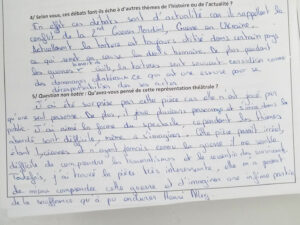 4/ Selon vous, ces débats font-ils écho à d'autres thèmes de l'histoire ou de l'actualité ?
En effet ces débats sont d'actualité car ils rappellent le
conflit de la 2nd Guerre Mondial, Guerre en Ukraine.
Actuellement la torture est toujours utilisé dans certain pays
ce qui va contre les droits humains. De plus pendant
les guerres, la torture sont souvent considéré comme
des dommages collatéraux ce qui est une excuse pour se
5/ Question non notée : Qu'avez-vous pensé de cette représentation théâtrale ?
J'ai été surprise par cette pièce car elle n'est joué par
qu'une seul personne. De plus, il joue plusieurs personnages et
public. J'ai aimé la forme du spectacle, cependant les thèmes
abordé sont difficile, même à s'imaginer. Cette pièce paraît
étant lycéennes n'ayant jamais connu la guerre il me semble
difficile de comprendre les traumatismes et le ressenti des survivants.
Toutefois, j'ai trouvé la pièce très intéressante, elle m'a permit
de mieux comprendre cette guerre et d'imaginer une infime partie
de la souffrance qu'a pu endurer Henri Alleg.